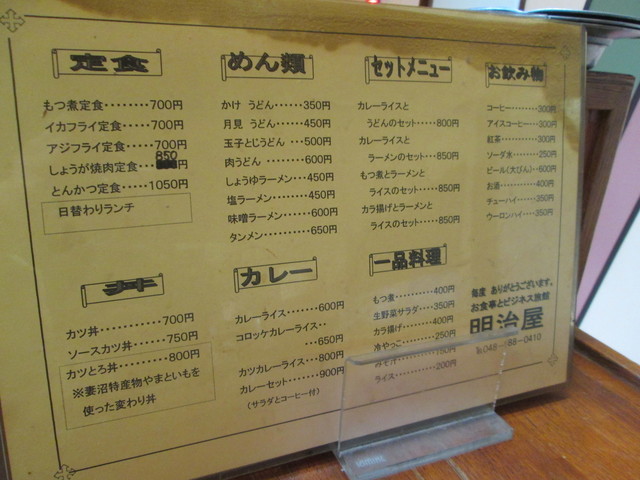 定食
もつ煮定食・・・・・・・・700円
イカフライ定食・・・・・700円
アジフライ定食・・・・・700円
しょうが焼肉定食 850円
とんかつ定食・・・・1050円
日替わりランチ
丼
カツ丼・・・・・・・・・・700円
ソースカツ丼・・・・・750円
カツとろ丼・・・・・・・800円
※妻沼特産物やまといもを
使った変わり丼
めん類
かけ うどん・・・・・・350円
月見 うどん・・・・・・450円
玉子とじうどん ・・・500円
肉うどん ・・・・・・・・600円
しょうゆラーメン・・・450円
塩ラーメン・・・・・・・450円
味噌ラーメン・・・・・・600円
タンメン・・・・・・・・・650円
カレー
カレーライス・・・・・・600円
コロッケカレーライス・・
・・・・・・650円
カツカレーライス・・・800円
カレーセット・・・・・・900円
(サラダとコーヒー付)
セットメニュー
カレーライスと
うどんのセット・・・800円
カレーライスと
ラーメンのセット・・・850円
もつ煮とラーメンと
ライスのセット・・・・850円
カラ揚げとラーメンと
ライスのセット・・・・850円
一品料理
もつ煮・・・・・・・400円
生野菜サラダ・・・350円
カラ揚げ・・・・・・400円
冷やっこ・・・・・・250円
みそ汁・・・・・・・150円
ライス・・・・・・・200円
お飲み物
コーヒー・・・・・・300円
アイスコーヒー・・・300円
紅茶・・・・・・・・・300円
ソーダ水・・・・・・250円
ビール(大びん)・・600円
お酒・・・・・・・・・400円
チューハイ・・・・・350円
ウーロンハイ・・・350円
毎度 ありがとうございます。
お食事とビジネス旅館
明治屋